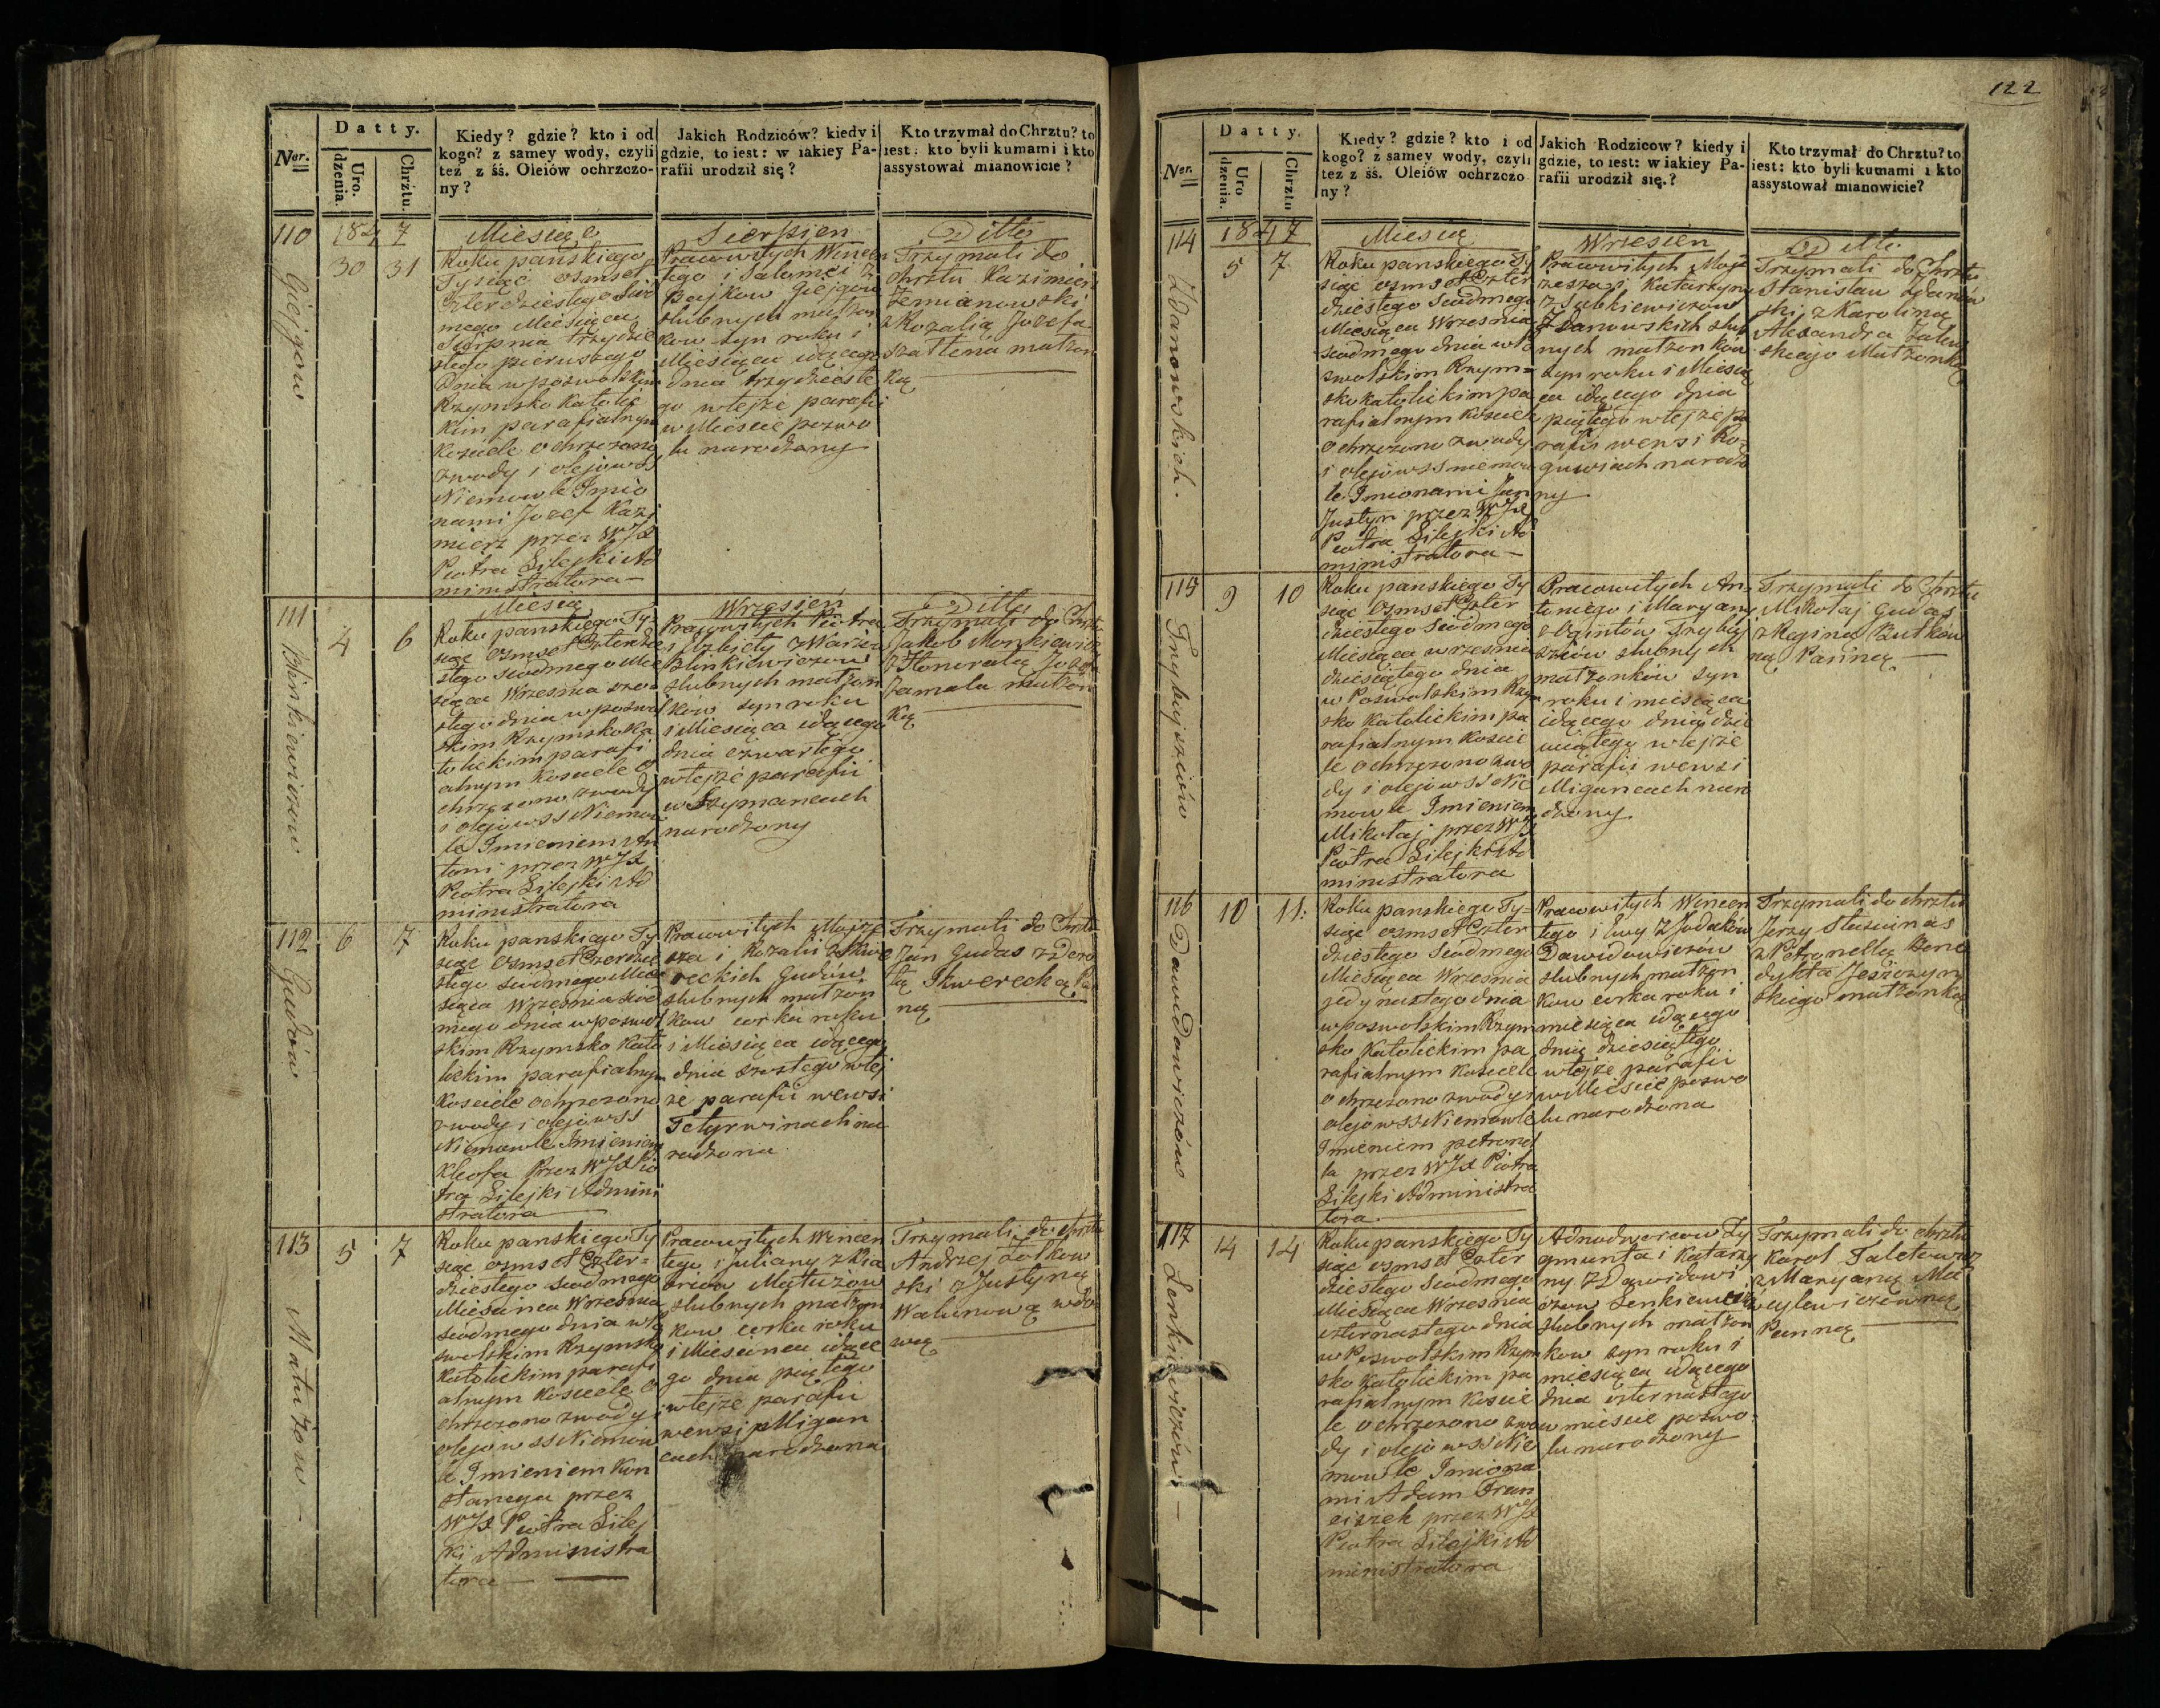 Datty.
Ner.
Uro.
dzenia.
Chrztu.
Kiedy? gdzie? kto i od
kogo? z samey wody, czyli
też z śś. Oleiów ochrzczo-
ny?
Jakich Rodziców? kiedy i
gdzie, to iest: w iakiey Pa-
rafii urodził się?
Kto trzymał do Chrztu? to
iest: kto byli kumami i kto
assystował mianowicie?
110
1847
30 31
Giejgow
Miesiąc
Roku panskiego
Tysiąc osmset
Czterdziestego Siod
mego Miesiąca
Sierpnia trzydzie
stego pierwszego
dnia w poswolskim
Rzymsko Katolic
kim parafialnym
Kosciele ochrzczono
z wody i olejow SS
Niemowle Imio
nami Jozef Kazi
mierz przez WJX
Piotra Lilejki Ad
ministratora
Sierpien
Prawowitych Wincen
tego i Salomei z
Bujkow Giejgow
slubnych małżon
kow syn roku i
Miesiąca idącego
dnia trzydzieste
go w tejże parafii
w Miescie poswo
lu narodzony
Ditto
Trzymali do
chrztu Kazimierz
Jemianowski
z Rozalią Jozefa
Szatlena małżon
ką
111
4 6
Blinkiewiczow
Miesiąc
Roku panskiego Ty-
siąc osmset Czterdzie
stego siodmego Mie
siąca Wrzesnia szo
stego dnia w poswol
skim Rzymsko Ka
tolickim parafi
alnym Kosciele o
chrzczono z wody
i olejow SS Niemow
le Imieniem An
toni przez WJX
Piotra Lilejki Ad
ministratora
Wrzesień
Prawowitych Piotra
i Elzbiety z
Blinkiewiczow
slubnych małżon
kow syn roku
i Miesiąca idącego
dnia czwartego
w tejże parafii
w Szymancach
narodzony
Ditto
Trzymali do Chrztu
Jakob Monkiewicz
z Honoratą Jozefa
Jamala małżon
ką
112
6 7
Gudow
Roku panskiego Ty
siąc osmset Czerdzie
stego siodmego Mie
siąca Wrzesnia siod
mego dnia w poswol
skim Rzymsko Kato
lickim parafialnym
Kosciele ochrzczono
z wody i olejow SS
Niemowle Imieniem
Kleofa przez WJX Pio
tra Lilejki Admini
stratora
Prawowitych Mojże
sza i Rozalii z Skwe
reckich Gudow
slubnych małżon
kow corka roku
i Miesiąca idącego
dnia szostego w tej
że parafii we wsi
Tetyrwinach na
rodzona
Trzymali do Chrztu
Jan Gudas z Doro
tą Skwerecką Pan
ną
113
5 7
Matuzow
Roku panskiego Ty
siąc osmset Czter-
dziestego siodmego
Miesiaca Wrzesnia
siodmego dnia w Po
swolskim Rzymsko
Katolickim parafi
alnym Kosciele o
chrzczono z wody i
olejow SS Niemow
le Imieniem Kon
stancya przez
WJX Piotra Lilej
ki Administra
tora
Prawowitych Wincen
tego i Julianny z
Matuzow
slubnych małżon
kow corka roku
i Miesiaca idące
go dnia piątego
w tejże parafii
we wsi Migan
cach narodzona
Trzymali do chrztu
Andrzej Zołkow
ski z Justyną
Walunową wdo
wą
122
Datty.
Ner.
Uro
dzenia.
Chrztu
Kiedy? gdzie? kto i od
kogo? z samey wody, czyli
też z śś. Oleiów ochrzczo-
ny?
Jakich Rodzicow? kiedy i
gdzie, to iest: w iakiey Pa-
rafii urodził się.?
Kto trzymał do Chrztu? to
iest: kto byli kumami i kto
assystował mianowicie?
114
1847
5 7
Zdanowskich.
Miesiąc
Roku panskiego Ty
siąc osmset Czter
dziestego Siodmego
Miesiąca Wrzesnia
siodmego dnia w Po
swolskim Rzym-
sko katolickim pa
rafialnym Kosciele
ochrzczono z wody
i olejow SS niemow
le Imionami Jan
Justyn przez WJX
Piotra Lilejki Ad
ministratora
Wrzesien
Prawowitych Moj
zesza i Katarzyny
z Sabkiewiczow
Zdanowskich slub
nych małżonkow
syn roku i Miesią
ca idącego dnia
piątego w tejże pa
rafii we wsi Ro-
guwiach narodzo
ny
Ditto
Trzymali do Chrztu
Stanisław Zdanow
ski z Karoliną
Alexandra Zalew
skiego Małzonką
115
9 10
Roku panskiego Ty
siąc osmset Czter
dziestego siodmego
Miesiąca wrzesnia
dziesiątego dnia
w Poswolskim Rzym
sko Katolickim pa
rafialnym Koscie
le ochrzczono z wo
dy i olejow SS Nie
mowle Imieniem
Mikołaj przez WJX
Piotra Lilejki Ad
ministratora
Pracowitych An-
toniego i Maryany
z Ogintów
slubnych
małżonków syn
roku i miesiąca
idącego dnia dzie
wiątego w tejże
parafii we wsi
Migancach naro
dzony
Trzymali do Chrztu
Mikołaj Gudas
z Reginą Butkow
ną Panną
116
10 11.
Dawidowiczow
Roku panskiego Ty-
siąc osmset Czter
dziestego Siodmego
Miesiąca Wrzesnia
jedynastego dnia
w poswolskim Rzym
sko Katolickim pa
rafialnym Kosciele
ochrzczono z wody i
olejow SS Niemowle
Imieniem petronel
la przez WJX Piotra
Lilejki Administra
tora
Prawowitych Wincen
tego i Ewy z Jodakow
Dawidowiczow
slubnych małżon
kow corka roku i
miesiąca idącego
dnia dziesiątego
w tejże parafii
w Miescie poswo
lu narodzona
Trzymali do chrztu
Jerzy
z Petronellą Bene
dykta
skiego małżonką
117
14 14
Lenkiewiczow
Roku panskiego Ty
siąc osmset Czter
dziestego Siodmego
Miesiąca Wrzesnia
czternastego dnia
w Poswolskim Rzym
sko Katolickim pa
rafialnym Koscie
le ochrzczono z wo
dy i olejow SS Nie
mowle Imiona
mi Adam Fran
ciszek przez WJX
Piotra Lilejki Ad
ministratora
Adnodworcow Zy
gmunta i Katarzy
ny z Dawidowi
czow Lenkiewiczow
slubnych małżon
kow syn roku i
miesiąca idącego
dnia czternastego
w miescie poswo
lu narodzony
Trzymali do chrztu
Karol
z Maryanną

Panną